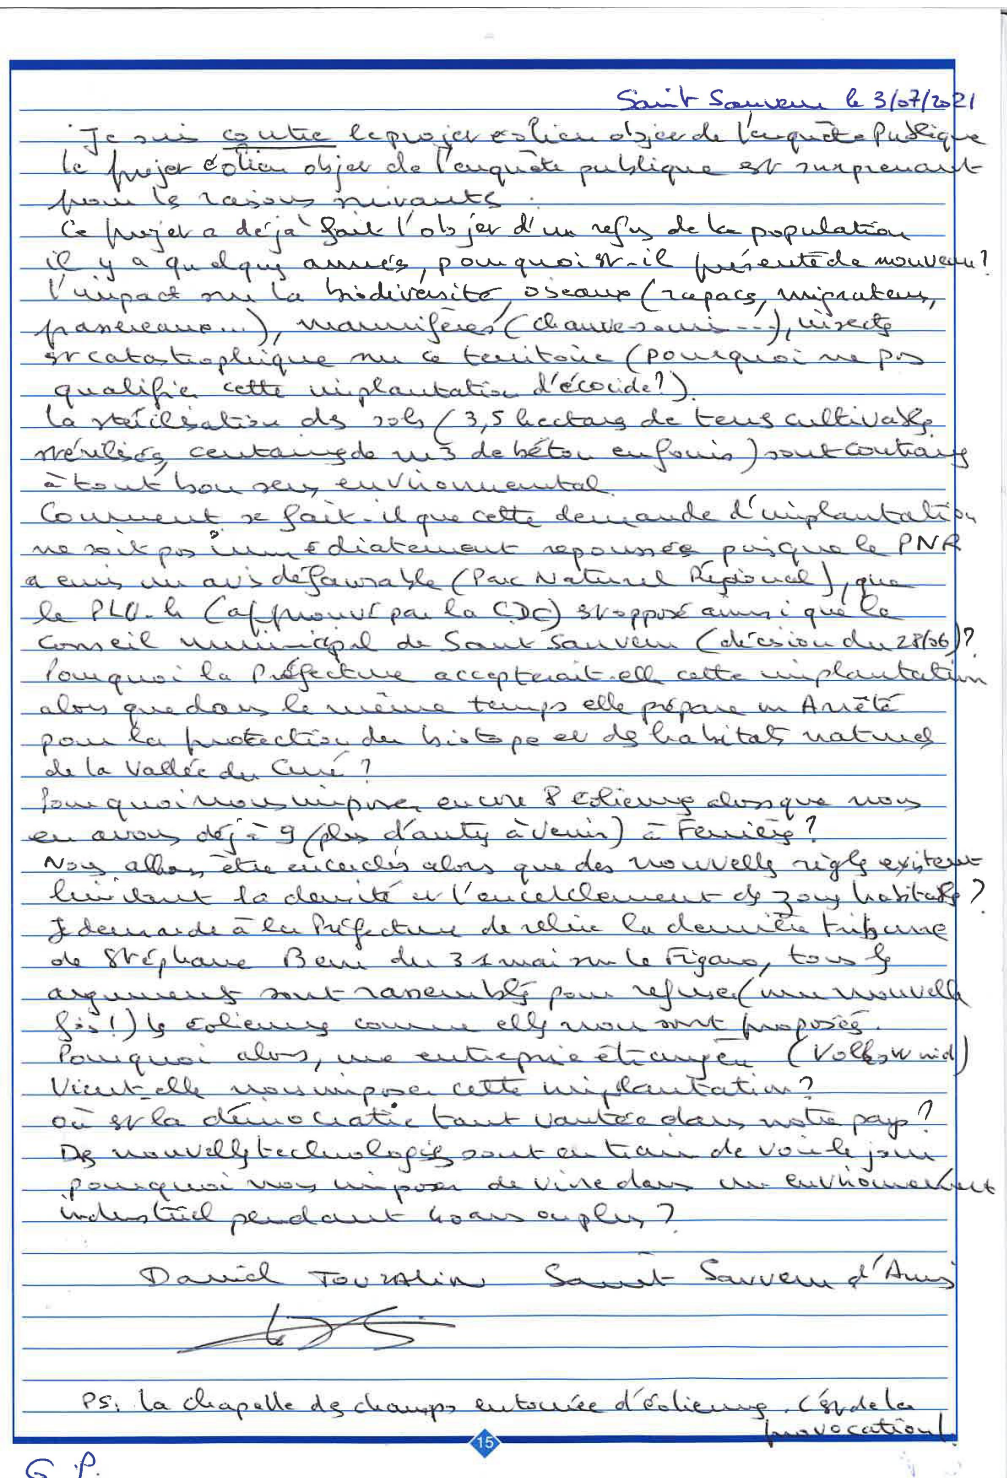 Saint Sauveur le 3/07/2021
Je suis contre le projet éolien objet de l'enquête Publique
le projet éolien objet de l'enquête publique est surprenant
pour les raisons suivantes :
Ce projet a déjà fait l'objet d'un refus de la population
il y a quelques années, pourquoi est-il présenté de nouveau ?
l'impact sur la biodiversité, oiseaux (rapaces, migrateurs,
passereaux...), mammifères (chauve-souris...), insectes
est catastrophique sur ce territoire (pourquoi ne pas
qualifier cette implantation d'écocide ?).
La stérilisation des sols (3,5 hectares de terres cultivables
stérilisés, centaines de m3 de béton enfouis) sont contraires
à tout bon sens environnemental.
Comment se fait-il que cette demande d'implantation
ne soit pas immédiatement repoussée puisque le PNR
a émis un avis défavorable (Parc Naturel Régional), que
le PLU-h (approuvé par la CDC) s'oppose ainsi que le
Conseil municipal de Saint Sauveur (décision du 28/06) ?
Pourquoi la Préfecture accepterait-elle cette implantation
alors que dans le même temps elle prépare un Arrêté
pour la protection du biotope et des habitats naturels
de la Vallée du Curé ?
Pourquoi nous imposer encore 8 éoliennes alors que nous
en avons déjà 9 (plus d'autres à venir) à Ferrières ?
Nous allons être encerclés alors que des nouvelles règles existent
limitant la densité et l'encerclement des zones habitables ?
Je demande à la Préfecture de relire la dernière tribune
de Stéphane Bern du 31 mai sur le Figaro, tous les
arguments sont rassemblés pour refuser (une nouvelle
fois !) les éoliennes comme elles nous sont proposées.
Pourquoi alors, une entreprise étrangère (Volkswind)
vient-elle nous imposer cette implantation ?
où est la démocratie tant vantée dans notre pays ?
Des nouvelles technologies sont en train de voir le jour
pourquoi nous imposer de vivre dans un environnement
industriel pendant 40 ans ou plus ?
Daniel TOUZALIN Saint Sauveur d'Aunis
PS : la chapelle des champs entourée d'éoliennes. C'est de la
provocation !
15
G. P.